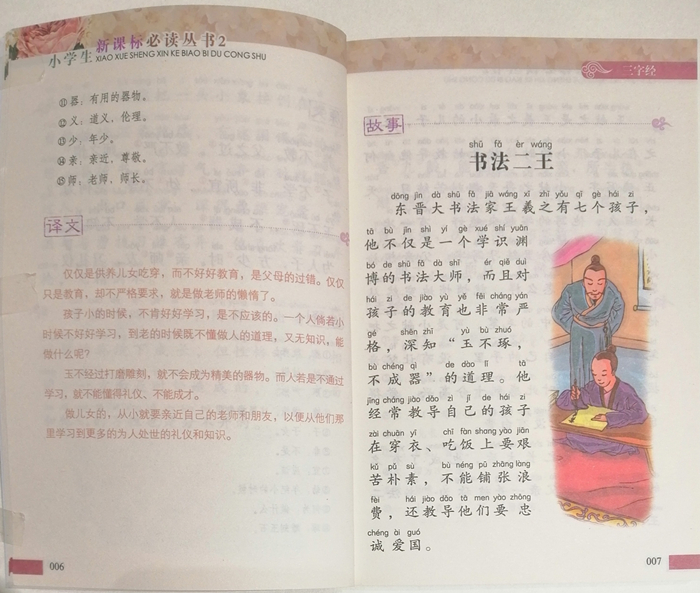 小学生新课标必读丛书2
XIAO XUE SHENG XIN KE BIAO BI DU CONG SHU
⑪器：有用的器物。
⑫义：道义，伦理。
⑬少：年少。
⑭亲：亲近，尊敬。
⑮师：老师，师长。
译文
仅仅是供养儿女吃穿，而不好好教育，是父母的过错。仅仅
只是教育，却不严格要求，就是做老师的懒惰了。
孩子小的时候，不肯好好学习，是不应该的。一个人倘若小
时候不好好学习，到老的时候既不懂做人的道理，又无知识，能
做什么呢？
玉不经过打磨雕刻，就不会成为精美的器物。而人若是不通过
学习，就不能懂得礼仪、不能成才。
做儿女的，从小就要亲近自己的老师和朋友，以便从他们那
里学习到更多的为人处世的礼仪和知识。
006
三字经
故事
shū fǎ èr wáng
书法二王
dōng jìn dà shū fǎ jiā wáng xī zhī yǒu qī gè hái zi
东晋大书法家王羲之有七个孩子，
tā bù jǐn shì yí gè xué shí yuān
他不仅是一个学识渊
bó de shū fǎ dà shī ér qiě duì
博的书法大师，而且对
hái zi de jiào yù yě fēi cháng yán
孩子的教育也非常严
gé shēn zhī yù bù zhuó
格，深知“玉不琢，
bù chéng qì de dào lǐ tā
不成器”的道理。他
jīng cháng jiào dǎo zì jǐ de hái zi
经常教导自己的孩子
zài chuān yī chī fàn shang yào jiān
在穿衣、吃饭上要艰
kǔ pǔ sù bù néng pū zhāng làng
苦朴素，不能铺张浪
fèi hái jiào dǎo tā men yào zhōng
费，还教导他们要忠
chéng ài guó
诚爱国。
007